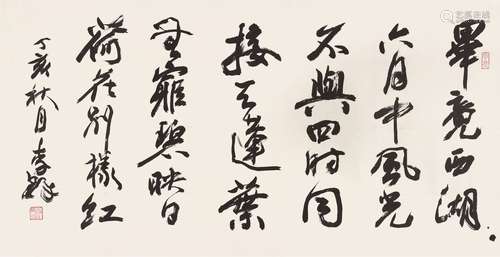 畢竟西湖
六月中風光
不與四时同
接天蓮葉
無窮碧映日
荷花别樣紅
丁亥秋月李鐸